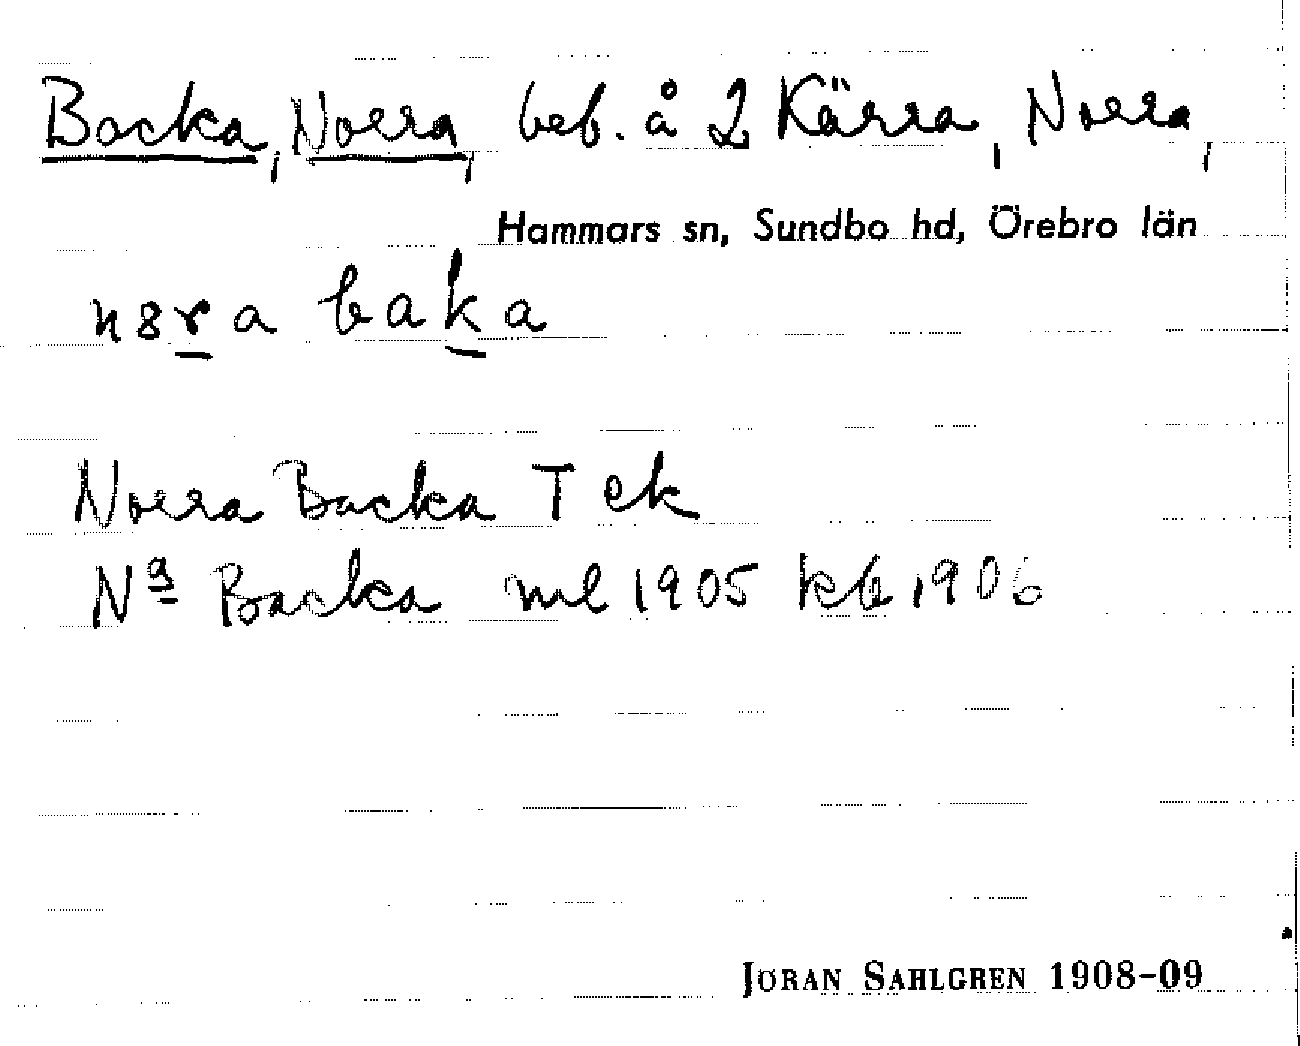 Backa, Norra, beb. å 2 Kärra, Norra,
Hammars sn, Sundbo hd, Örebro län
n8ra baka
Norra Backa T ek
Nª Backa ml 1905 kb 1906
JÖRAN SAHLGREN 1908-09